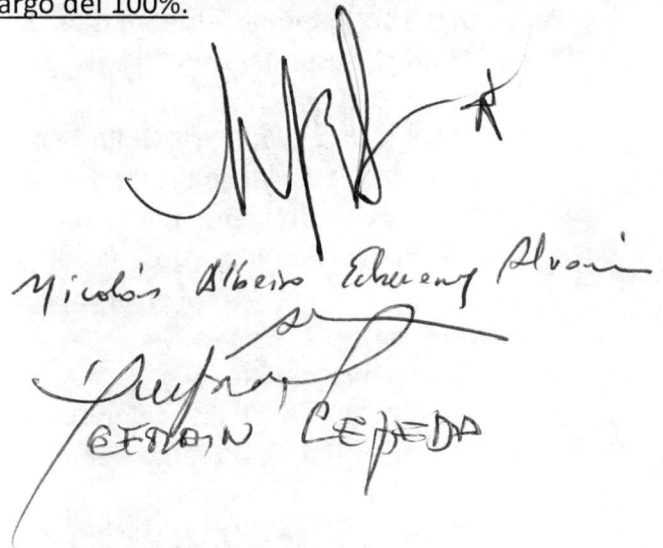 argo del 100%.
Nicolás Albeiro Echeverry Alvarán
EFRAIN CEPEDA